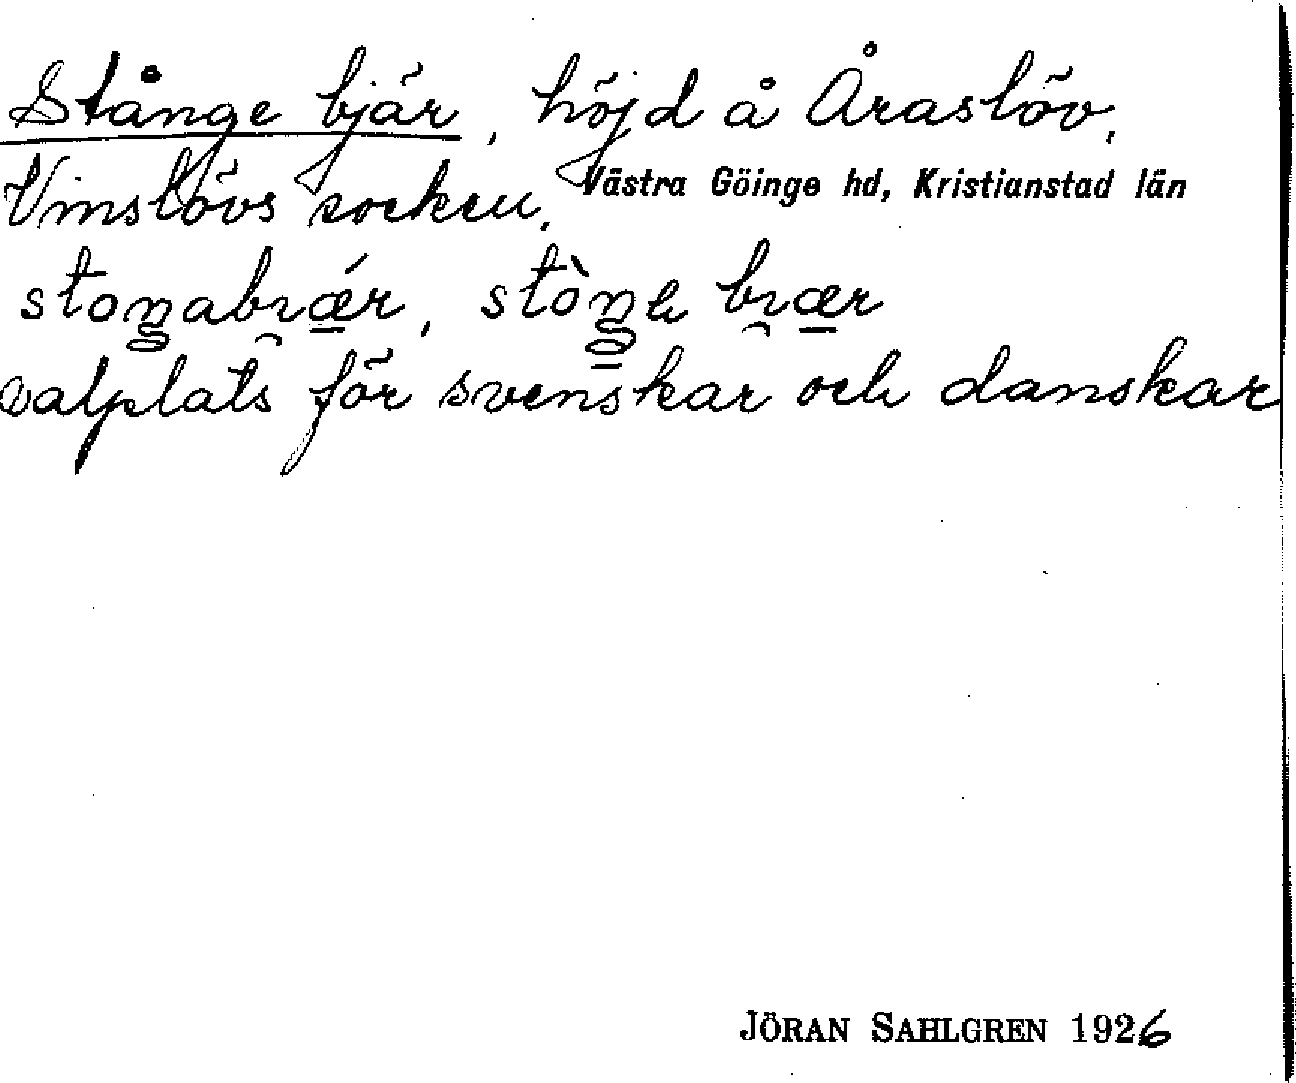 Stånge bjär, höjd å Åraslöv,
Vinslövs socken, Västra Göinge hd, Kristianstad län
stoŋabıǽr, stòŋe bıær
valplats för svenskar och danskar
JÖRAN SAHLGREN 1926